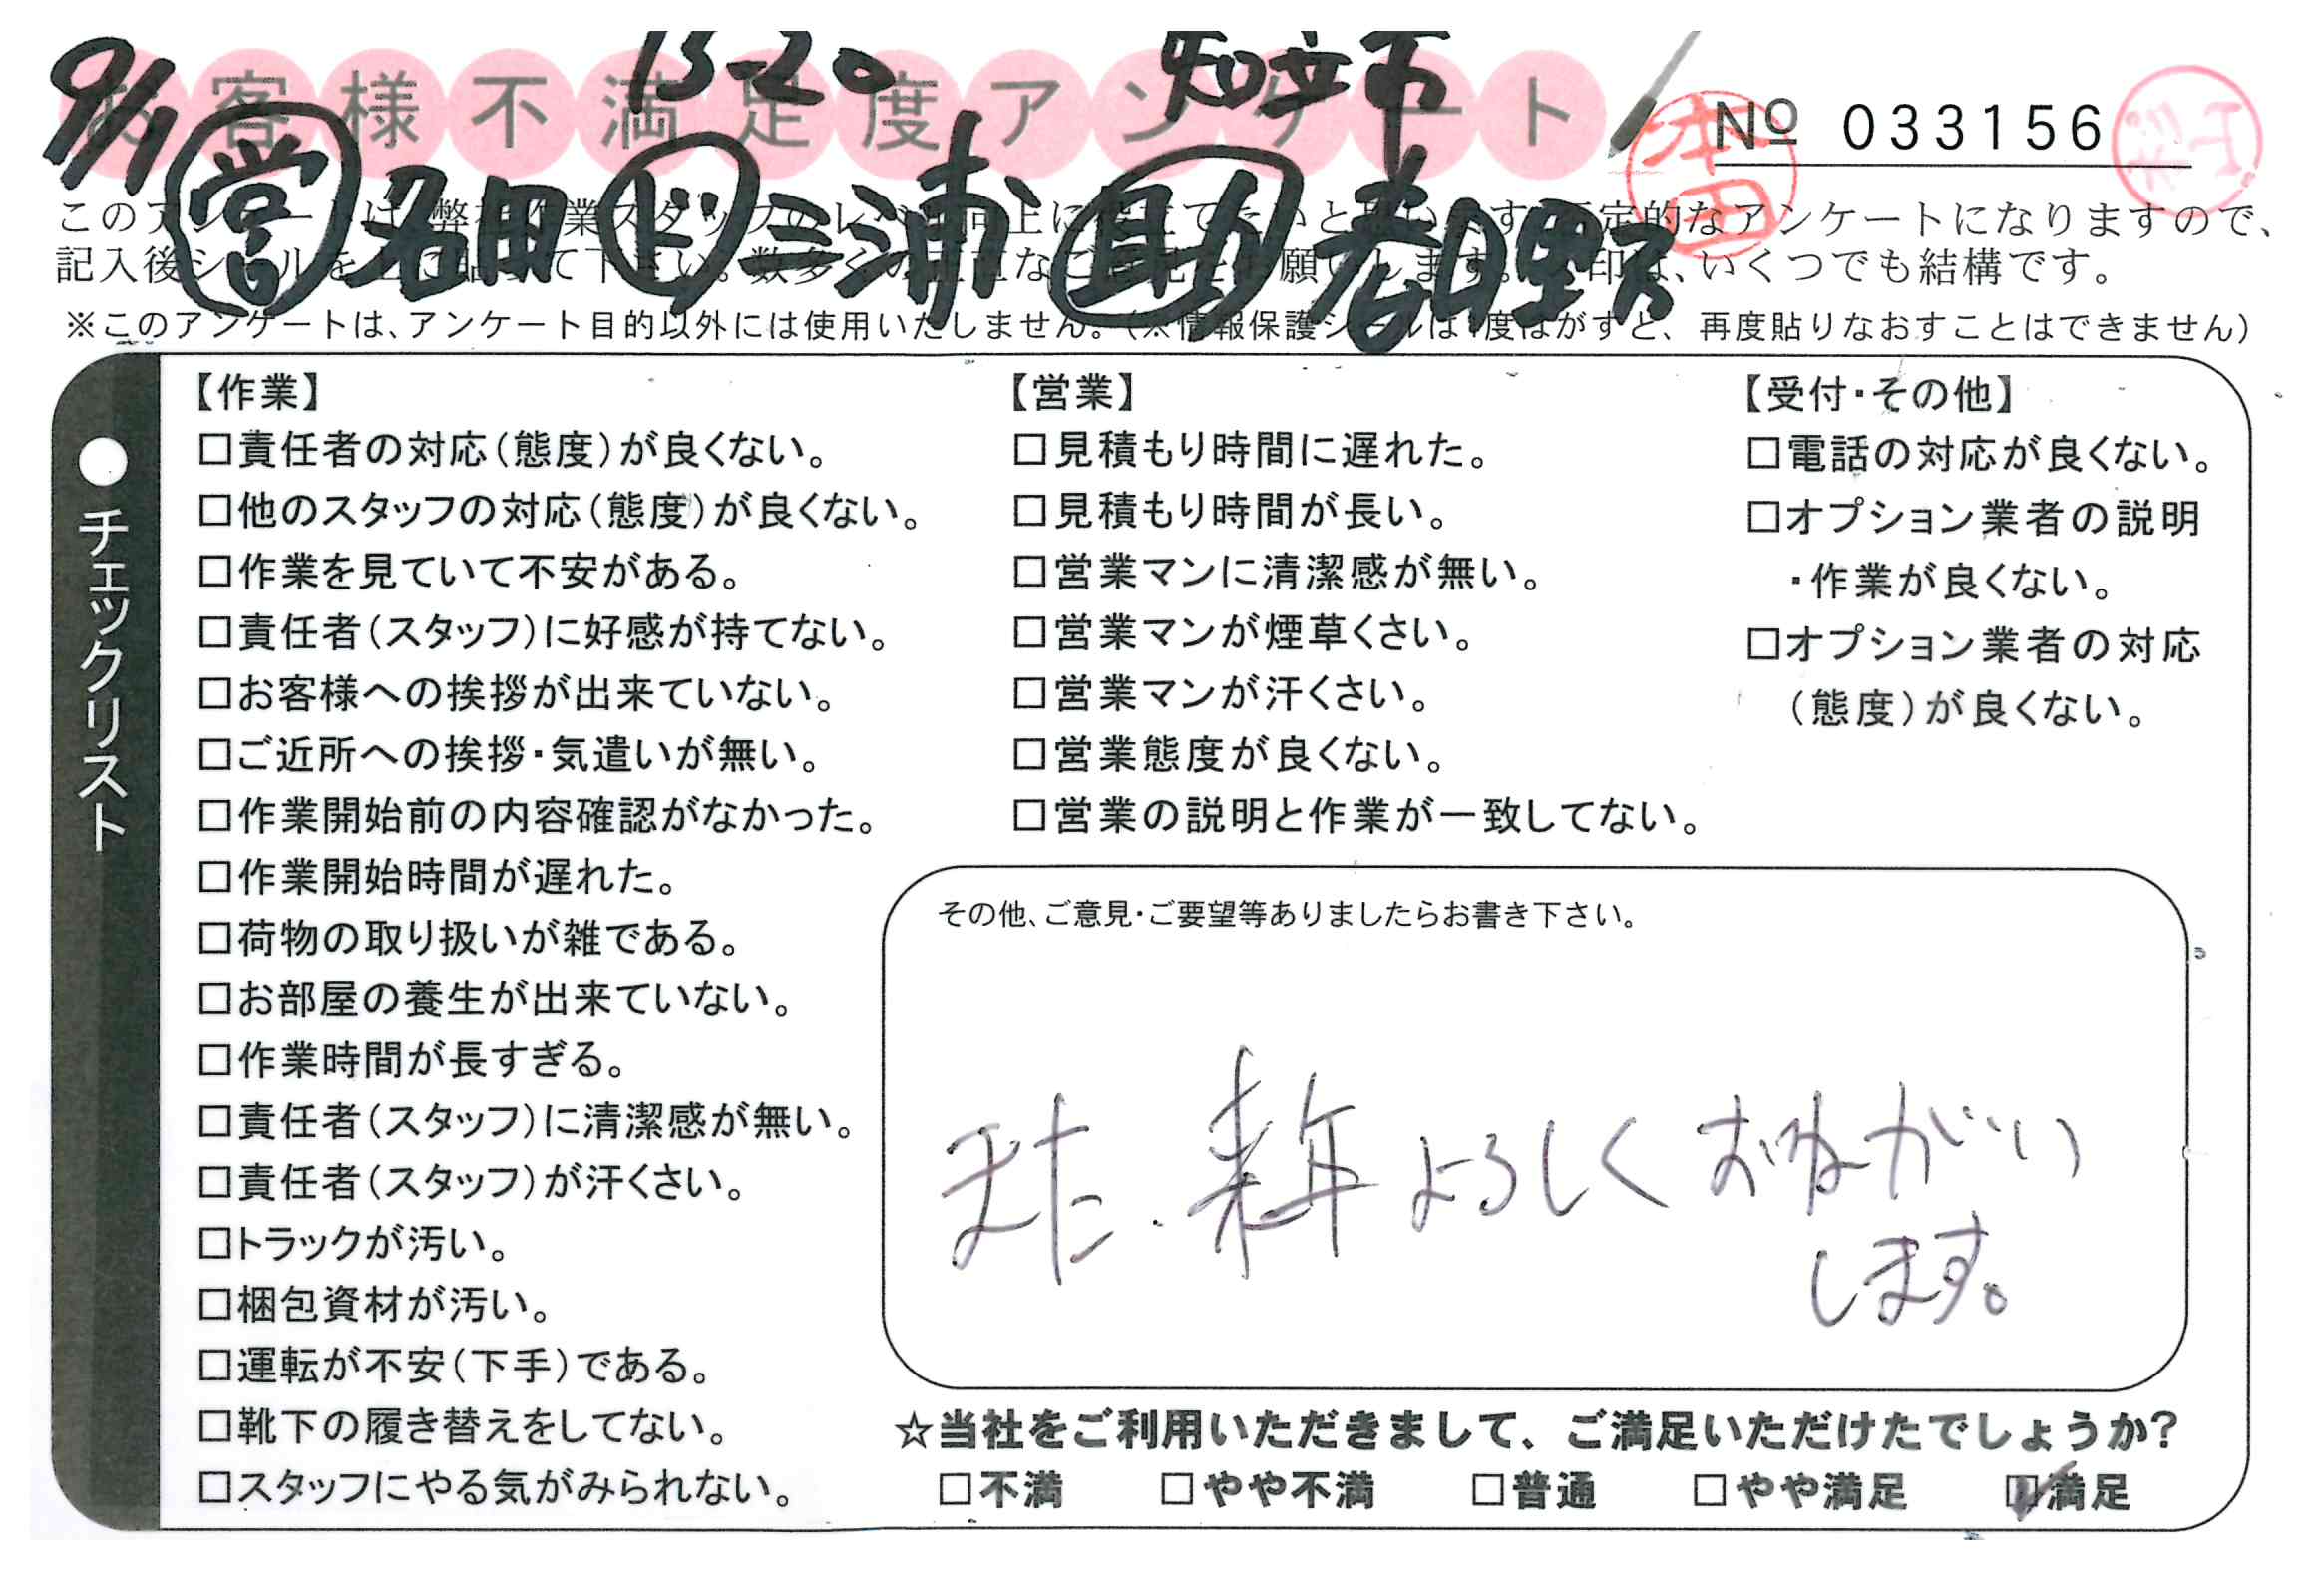 9/1 13-20 知立市
お客様不満足度アンケート
No 033156
本田
営 名田 ド 三浦 助 春日野
このアンケートは、弊社作業スタッフのレベル向上に役立てたいと思います。否定的なアンケートになりますので、
記入後シールを上に貼って下さい。数多くの正直なご意見をお願いします。✓印は、いくつでも結構です。
※このアンケートは、アンケート目的以外には使用いたしません。(※情報保護シールは1度はがすと、再度貼りなおすことはできません)
●チェックリスト
【作業】
□責任者の対応(態度)が良くない。
□他のスタッフの対応(態度)が良くない。
□作業を見ていて不安がある。
□責任者(スタッフ)に好感が持てない。
□お客様への挨拶が出来ていない。
□ご近所への挨拶・気遣いが無い。
□作業開始前の内容確認がなかった。
□作業開始時間が遅れた。
□荷物の取り扱いが雑である。
□お部屋の養生が出来ていない。
□作業時間が長すぎる。
□責任者(スタッフ)に清潔感が無い。
□責任者(スタッフ)が汗くさい。
□トラックが汚い。
□梱包資材が汚い。
□運転が不安(下手)である。
□靴下の履き替えをしてない。
□スタッフにやる気がみられない。
【営業】
□見積もり時間に遅れた。
□見積もり時間が長い。
□営業マンに清潔感が無い。
□営業マンが煙草くさい。
□営業マンが汗くさい。
□営業態度が良くない。
□営業の説明と作業が一致してない。
【受付・その他】
□電話の対応が良くない。
□オプション業者の説明
・作業が良くない。
□オプション業者の対応
(態度)が良くない。
その他、ご意見・ご要望等ありましたらお書き下さい。
また、来年よろしくおねがい
します。
☆当社をご利用いただきまして、ご満足いただけたでしょうか?
□不満 □やや不満 □普通 □やや満足 ☑満足